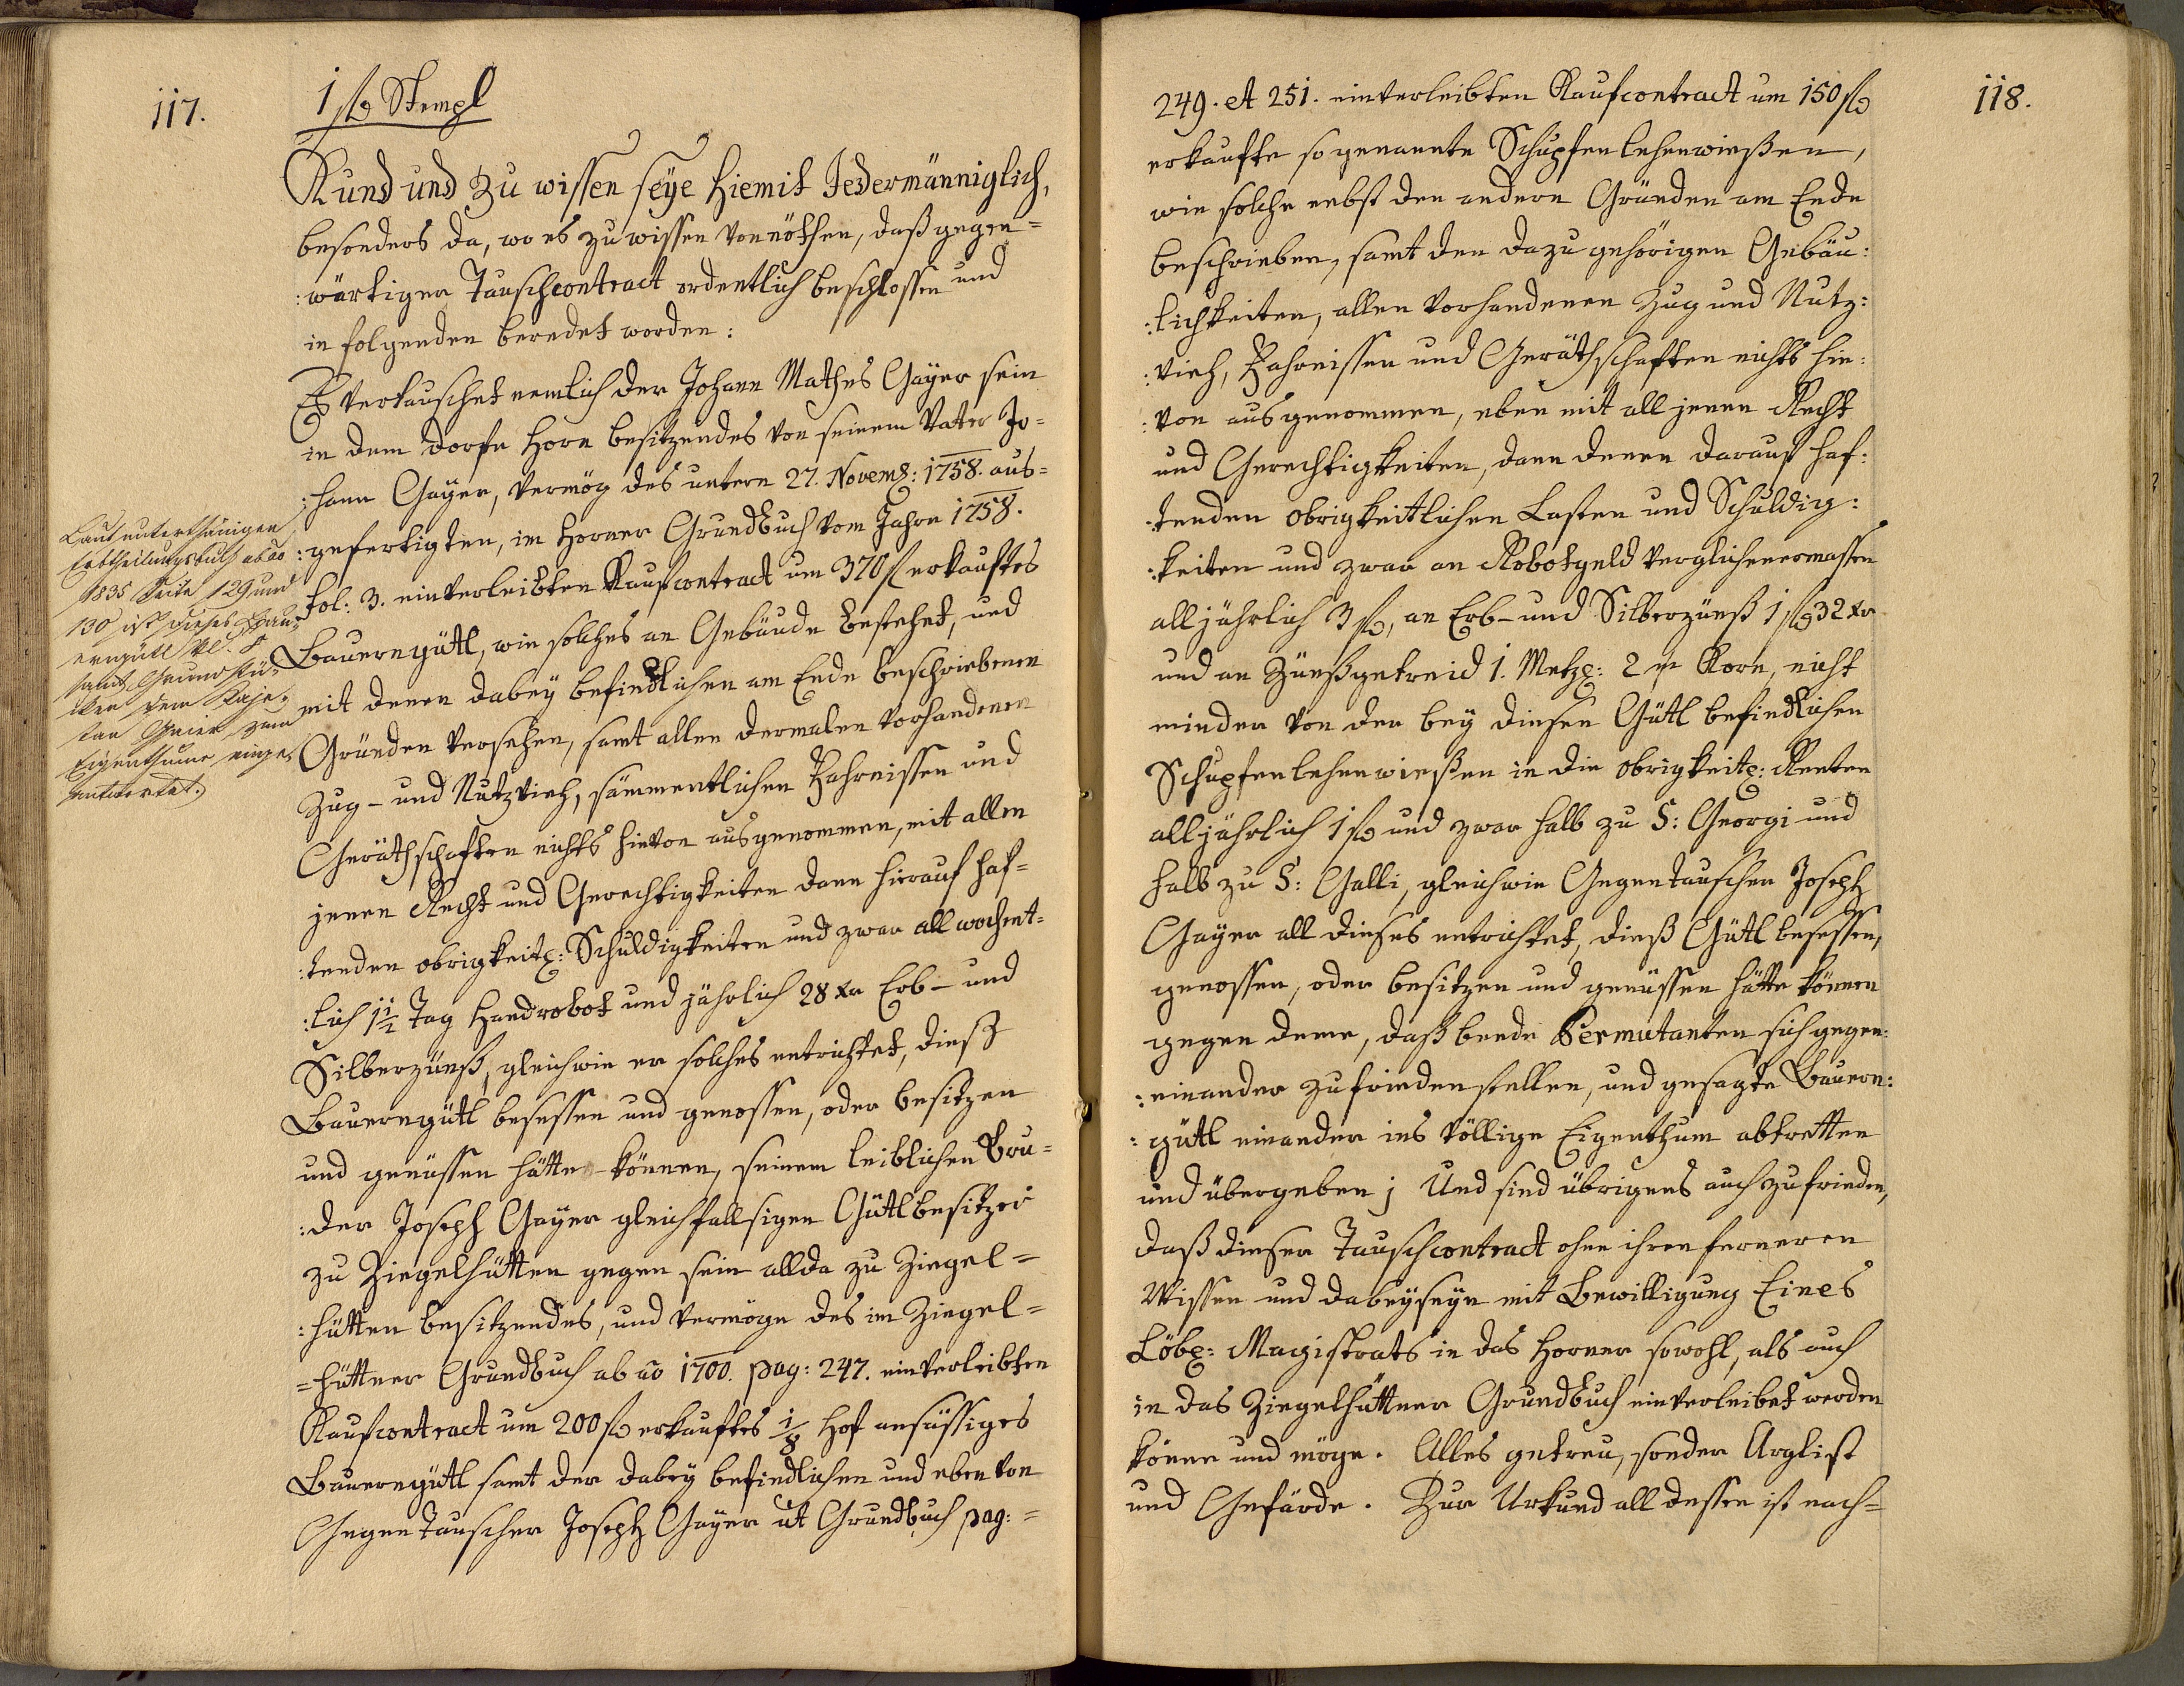 117.
1 fl Stempl
Kund und zu wissen seye hiemit Jedermänniglich,
besonders da, wo es zu wissen vonnöthen, daß gegen=
:wärtiger Tauschcontract ordentlich beschlossen und
in folgenden beredet worden:
Es vertauschet nemlich der Johann Mathes Gayer sein
in dem Dorfe Horn besitzendes von seinem Vater Jo=
:hann Gayer, vermög des untern 27. Novemb: 1758. aus=
:gefertigten, im Horner Grundbuch vom Jahre 1758.
fol: 3. einverleibten Kaufcontract um 370 fl erkauftes
Bauerngütl, wie solches an Gebäude bestehet, und
mit denen dabey befindlichen am Ende beschriebenen
Gründen versehen, samt allen dermalen vorhandenen
Zug- und Nutzvieh, sämmentlichen Fahrnissen und
Geräthschaften nichts hievon ausgenommen, mit allen
jenen Recht und Gerechtigkeiten dann hierauf haf=
:tenden obrigkeitl: Schuldigkeiten und zwar all wochent=
:lich 1 1/2 Tag Handrobot und jährlich 28 xr Erb- und
Silberzünß, gleichwie er solches entrichtet, dieß
Bauerngütl besessen und genossen, oder besitzen
und genüssen hätte können, seinem leiblichen Bru=
:der Joseph Gayer gleichfallsigen Gütlbesitzer
zu Ziegelhütten gegen sein allda zu Ziegel=
:hütten besitzendes, und vermöge des im Ziegel=
=hüttner Grundbuch ab ao 1700. pag: 247. einverleibten
Kaufcontract um 200 fl erkauftes 1/8 Hof ansässiges
Bauerngütl samt der dabey befindlichen und eben von
Gegentauscher Joseph Gayer ut Grundbuch pag:=
Laut unterthänigen
Erbtheilungsbuch ab ao
1835 Seite 129 und
130 ist dieses Bau=
erngütl No. 8
samt Grundstü=
cken dem Kaje=
tan Geier zum
Eigenthume einge=
antwortet.
118.
249. et 251. einverleibten Kaufcontract um 150 fl
erkaufte so genannte Schupfenlehenwießen,
wie solche nebst den andern Gründen am Ende
beschrieben, samt den dazu gehörigen Gebäu:
:lichkeiten, allen vorhandenen Zug und Nutz:
:vieh, Fahrnissen und Geräthschaften nichts hie:
:von ausgenommen, eben mit all jenen Recht
und Gerechtigkeiten, dann denen darauf haf:
:tenden obrigkeitlichen Lasten und Schuldig:
:keiten und zwar an Robotgeld verglichenermassen
alljährlich 3 fl, an Erb- und Silberzünß 1 fl 32 xr
und an Zünßgetreid 1. Metzl: 2 Korn, nicht
minder von der bey diesen Gütl befindlichen
Schupfenlehenwießen in die obrigkeitl: Renten
alljährlich 1 fl und zwar halb zu S: Georgi und
halb zu S: Galli, gleichwie Gegentauscher Joseph
Gayer all dieses entrichtet, dieß Gütl besessen,
genossen, oder besitzen und genüssen hätte können
gegen deme, daß beede Permutanten sich gegen:
:einander zufriedenstellen, und gesagte Bauern:
:gütl einander ins völlige Eigenthum abtretten
und übergeben; Und sind übrigens auch zufrieden,
daß dieser Tauschcontract ohne ihren ferneren
Wissen und dabeyseyn mit Bewilligung Eines
Löbl: Magistrats in das Horner sowohl, als auch
in das Ziegelhüttner Grundbuch einverleibet werden
könne und möge. Alles getreu, sonder Arglist
und Gefärde. Zur Urkund all dessen ist nach=